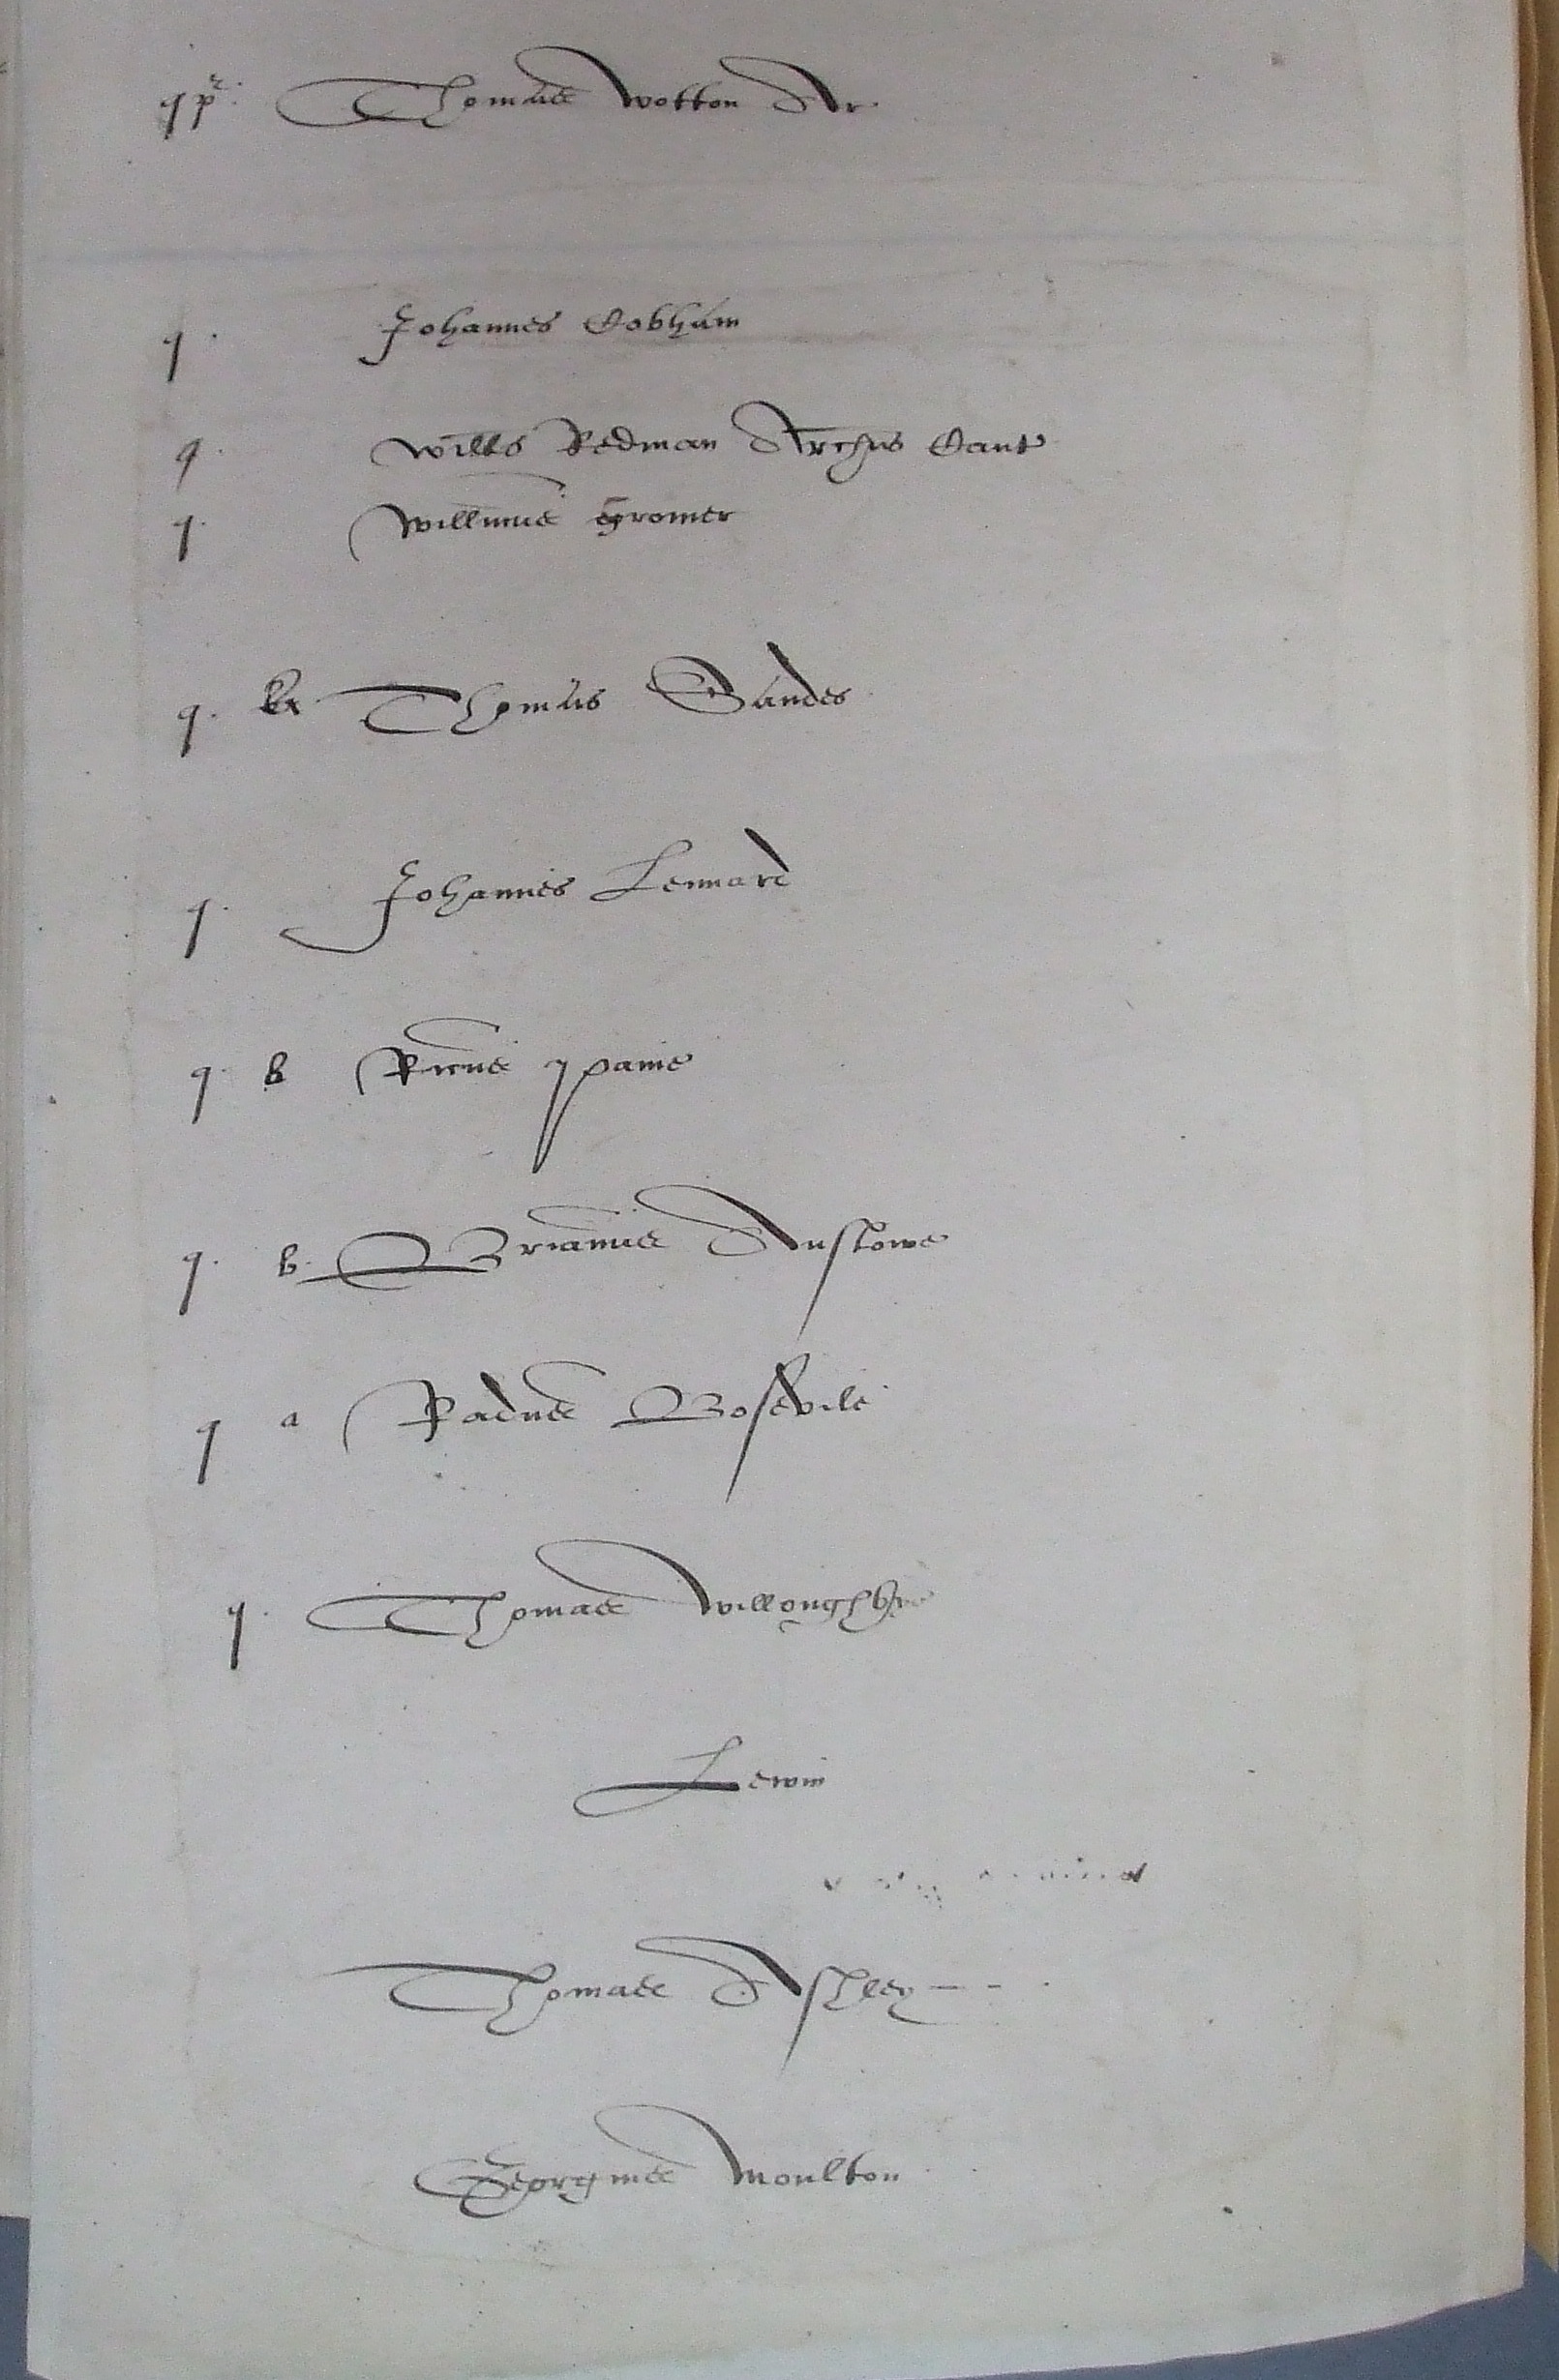 q p Thomas Wotton Ar
q Johannes Cobham
q Willus Redman Archus Cant
q Willmus Cromer
q Thomas Sandes
q Johannes Lennard
q b Ricus Payne
q b Brianus Anslowe
q a Radus Bosevile
q Thomas Willoughby
Lewin
Thomas Astley
Georgius Moulton